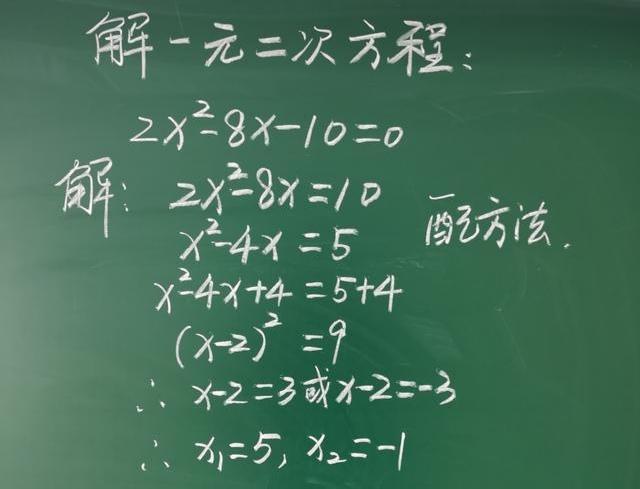 解一元二次方程:
2x²-8x-10=0
解: 2x²-8x=10
x²-4x=5
配方法.
x²-4x+4=5+4
(x-2)²=9
∴ x-2=3或x-2=-3
∴ x₁=5, x₂=-1